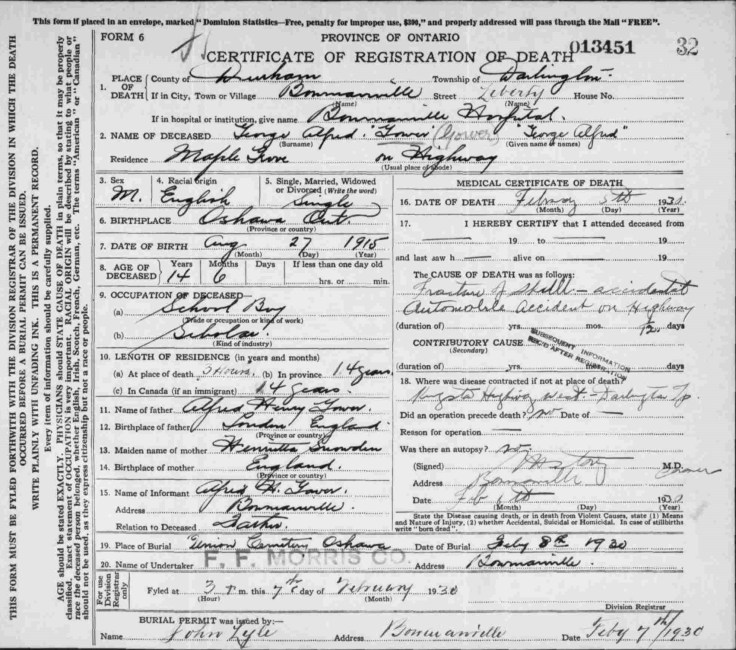 This form if placed in an envelope, marked, "Dominion Statistics—Free, penalty for improper use, $300," and properly addressed will pass through the Mail "FREE".
FORM 6
PROVINCE OF ONTARIO
CERTIFICATE OF REGISTRATION OF DEATH
013451
32
1. PLACE OF DEATH
County of Durham Township of Darlington
If in City, Town or Village Bowmanville Street Liberty House No.
(Name) (Name)
If in hospital or institution, give name Bowmanville Hospital.
2. NAME OF DECEASED George Alfred Gower (Gower) "George Alfred"
(Surname) (Given name or names)
Residence Maple Grove on Highway
(Usual place of abode)
3. Sex M.
4. Racial origin English
5. Single, Married, Widowed or Divorced (Write the word) Single
6. BIRTHPLACE Oshawa Ont.
(Province or country)
7. DATE OF BIRTH Aug 27 1915
(Month) (Day) (Year)
8. AGE OF DECEASED
Years Months Days If less than one day old
14 6 hrs. or min.
9. OCCUPATION OF DECEASED—
(a) School Boy
(Trade or occupation or kind of work)
(b) Scholar
(Kind of industry)
10. LENGTH OF RESIDENCE (in years and months)
(a) At place of death 5 Hours. (b) In province 14 years
(c) In Canada (if an immigrant) 14 years.
11. Name of father Alfred Henry Gower.
12. Birthplace of father London England.
(Province or country)
13. Maiden name of mother Henrietta Snowden
14. Birthplace of mother England.
(Province or country)
15. Name of Informant Alfred H. Gower.
Address Bowmanville
Relation to Deceased Father
MEDICAL CERTIFICATE OF DEATH
16. DATE OF DEATH February 5th 1930.
(Month) (Day) (Year)
17. I HEREBY CERTIFY that I attended deceased from
19 to 19
and last saw h alive on 19
The CAUSE OF DEATH was as follows:
Fracture of Skull - accidental
Automobile Accident on Highway
(duration of) yrs. mos. days
CONTRIBUTORY CAUSE
(Secondary)
SUBSEQUENT INFORMATION
REC'D AFTER REGISTRATION
(duration of) yrs. mos. days
18. Where was disease contracted if not at place of death?
Kingston Highway West - Darlington Tp.
Did an operation precede death? no Date of
Reason for operation
Was there an autopsy? no
(Signed) M.D.
Coroner
Address Bowmanville
Date Feb 6th 1930
State the Disease causing death, or in death from Violent Causes, state (1) Means and Nature of Injury, (2) whether Accidental, Suicidal or Homicidal. In case of stillbirths write "born dead".
19. Place of Burial Union Cemetery Oshawa Date of Burial Feby 8th 1930
20. Name of Undertaker F. F. MORRIS CO. Address Bowmanville.
For use Division Registrar only
Fyled at 3 P m. this 7th day of February 1930
(Hour) (Month)
Division Registrar
BURIAL PERMIT was issued by:—
Name John Lyle Address Bowmanville Date Feby 7th/1930
THIS FORM MUST BE FYLED FORTHWITH WITH THE DIVISION REGISTRAR OF THE DIVISION IN WHICH THE DEATH
OCCURRED BEFORE A BURIAL PERMIT CAN BE ISSUED.
WRITE PLAINLY WITH UNFADING INK. THIS IS A PERMANENT RECORD.
Every item of information should be carefully supplied.
AGE should be stated EXACTLY. PHYSICIANS should STATE CAUSE OF DEATH in plain terms, so that it may be properly
classified. Exact statement of OCCUPATION is very important. RACIAL ORIGIN will be described by stating to what people or
race the deceased person belonged, whether English, Irish, Scotch, French, German, etc. The terms "American" or "Canadian"
should not be used, as they express citizenship but not a race or people.